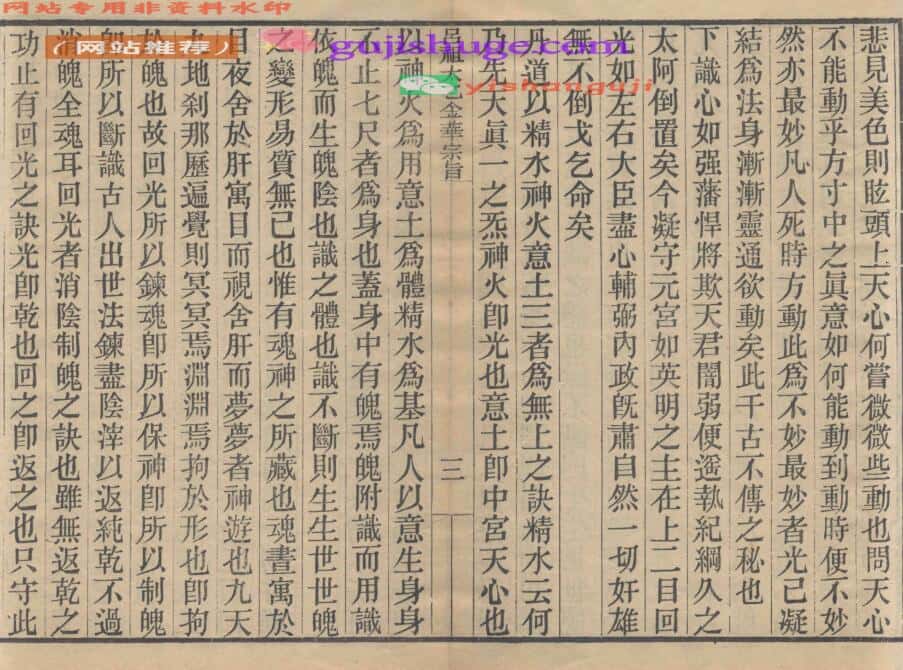 网站专用非资料水印
网站推荐
gujishuge.com
yishanguji
悲見美色則眩頭上天心何嘗微微些動也問天心
不能動乎方寸中之眞意如何能動到動時便不妙
然亦最妙凡人死時方動此爲不妙最妙者光已凝
結爲法身漸漸靈通欲動矣此千古不傳之秘也
下識心如强藩悍將欺天君闇弱便遥執紀綱久之
太阿倒置矣今凝守元宮如英明之主在上二目回
光如左右大臣盡心輔弼內政旣肅自然一切奸雄
無不倒戈乞命矣
丹道以精水神火意土三者爲無上之訣精水云何
乃先天眞一之炁神火卽光也意土卽中宮天心也
金華宗旨
三
以神火爲用意土爲體精水爲基凡人以意生身身
不止七尺者爲身也蓋身中有魄焉魄附識而用識
依魄而生魄陰也識之體也識不斷則生生世世魄
之變形易質無已也惟有魂神之所藏也魂晝寓於
目夜舍於肝寓目而視舍肝而夢夢者神遊也九天
九地刹那歷遍覺則冥冥焉淵淵焉拘於形也卽拘
於魄也故回光所以鍊魂卽所以保神卽所以制魄
卽所以斷識古人出世法鍊盡陰滓以返純乾不過
消魄全魂耳回光者消陰制魄之訣也雖無返乾之
功止有回光之訣光卽乾也回之卽返之也只守此